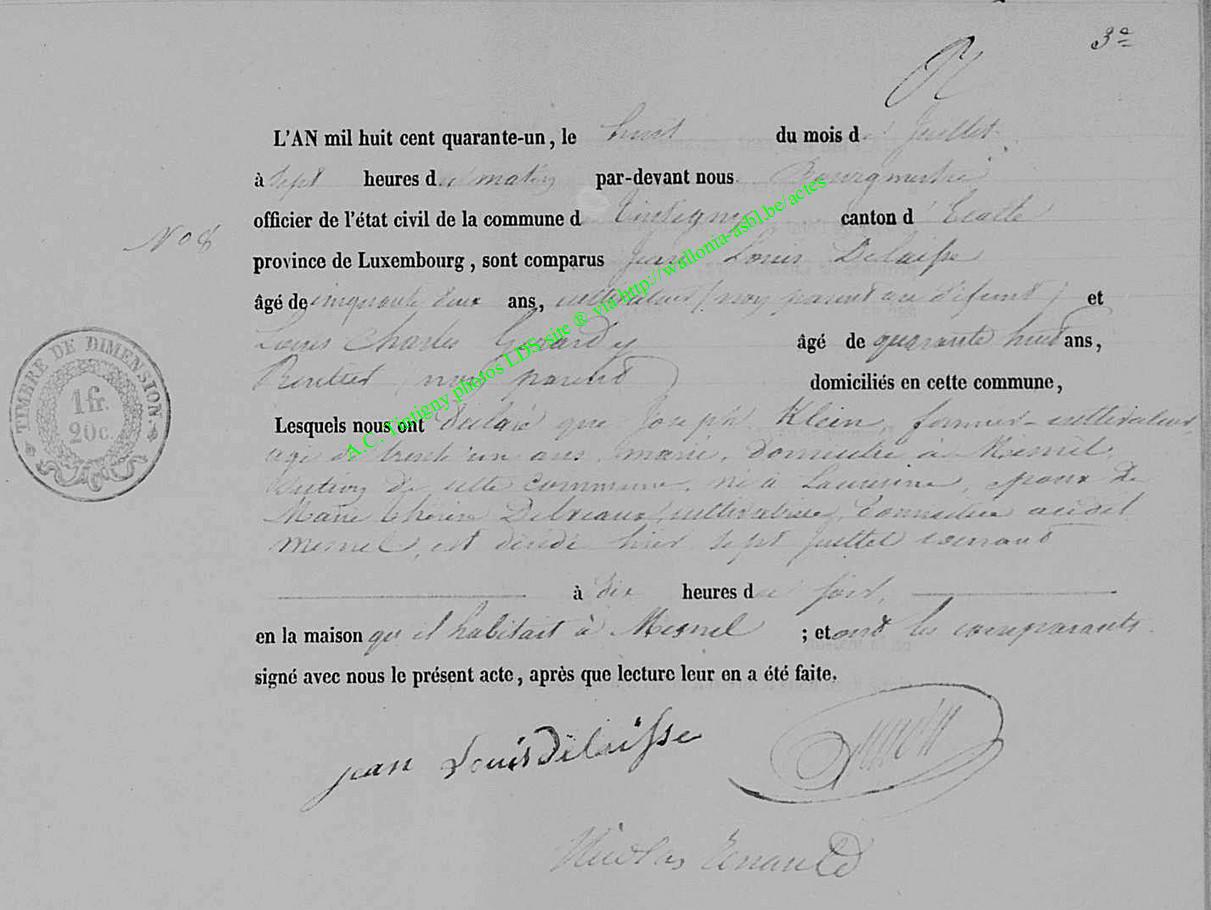 3e
L'AN mil huit cent quarante-un, le huit du mois de Juillet
à sept heures du matin par-devant nous Bourgmestre
officier de l'état civil de la commune d Tintigny canton d'Etalle
No 8
province de Luxembourg, sont comparus Jean Louis Delaisse
âgé de cinquante deux ans, cultivateur, non parent au défunt et
Louis Charles âgé de quarante huit ans,
Rentier non parent domiciliés en cette commune,
Lesquels nous ont déclaré que Joseph Klein, fermier-cultivateur,
agé de trente un ans, marié, domicilié à
section de cette commune, né à époux de
Marie Thérèse cultivatrice, domiciliée audit
Mesnel, est décédé hier sept juillet courant
à dix heures du soir,
en la maison qu'il habitait à Mesnel ; et ont les comparants
signé avec nous le présent acte, après que lecture leur en a été faite.
TIMBRE DE DIMENSION.
1 fr.
20 c.
A.C. Tintigny photos LDS site ® via http://wallonia-asbl.be/actes
jean Louis Delaisse
Nicolas